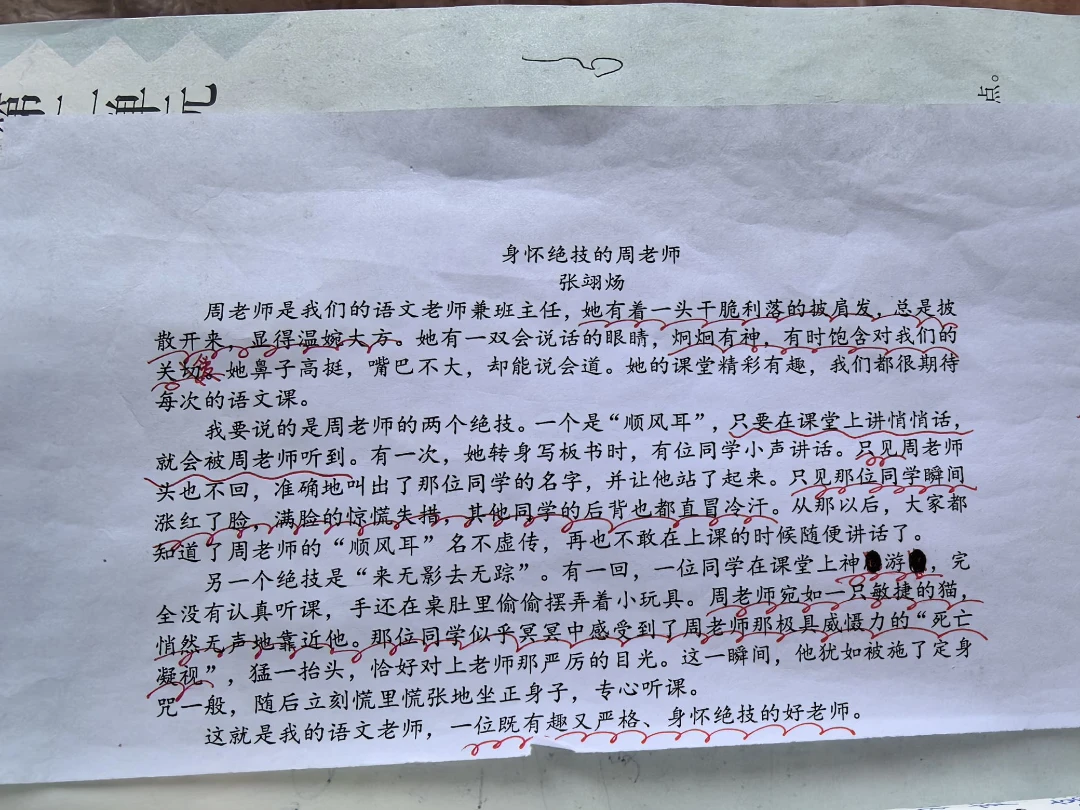 二单元
点。
身怀绝技的周老师
张翊炀
周老师是我们的语文老师兼班主任，她有着一头干脆利落的披肩发，总是披
散开来，显得温婉大方。她有一双会说话的眼睛，炯炯有神，有时饱含对我们的
关切。她鼻子高挺，嘴巴不大，却能说会道。她的课堂精彩有趣，我们都很期待
每次的语文课。
我要说的是周老师的两个绝技。一个是“顺风耳”，只要在课堂上讲悄悄话，
就会被周老师听到。有一次，她转身写板书时，有位同学小声讲话。只见周老师
头也不回，准确地叫出了那位同学的名字，并让他站了起来。只见那位同学瞬间
涨红了脸，满脸的惊慌失措，其他同学的后背也都直冒冷汗。从那以后，大家都
知道了周老师的“顺风耳”名不虚传，再也不敢在上课的时候随便讲话了。
另一个绝技是“来无影去无踪”。有一回，一位同学在课堂上神游，完
全没有认真听课，手还在桌肚里偷偷摆弄着小玩具。周老师宛如一只敏捷的猫，
悄然无声地靠近他。那位同学似乎冥冥中感受到了周老师那极具威慑力的“死亡
凝视”，猛一抬头，恰好对上老师那严厉的目光。这一瞬间，他犹如被施了定身
咒一般，随后立刻慌里慌张地坐正身子，专心听课。
这就是我的语文老师，一位既有趣又严格、身怀绝技的好老师。